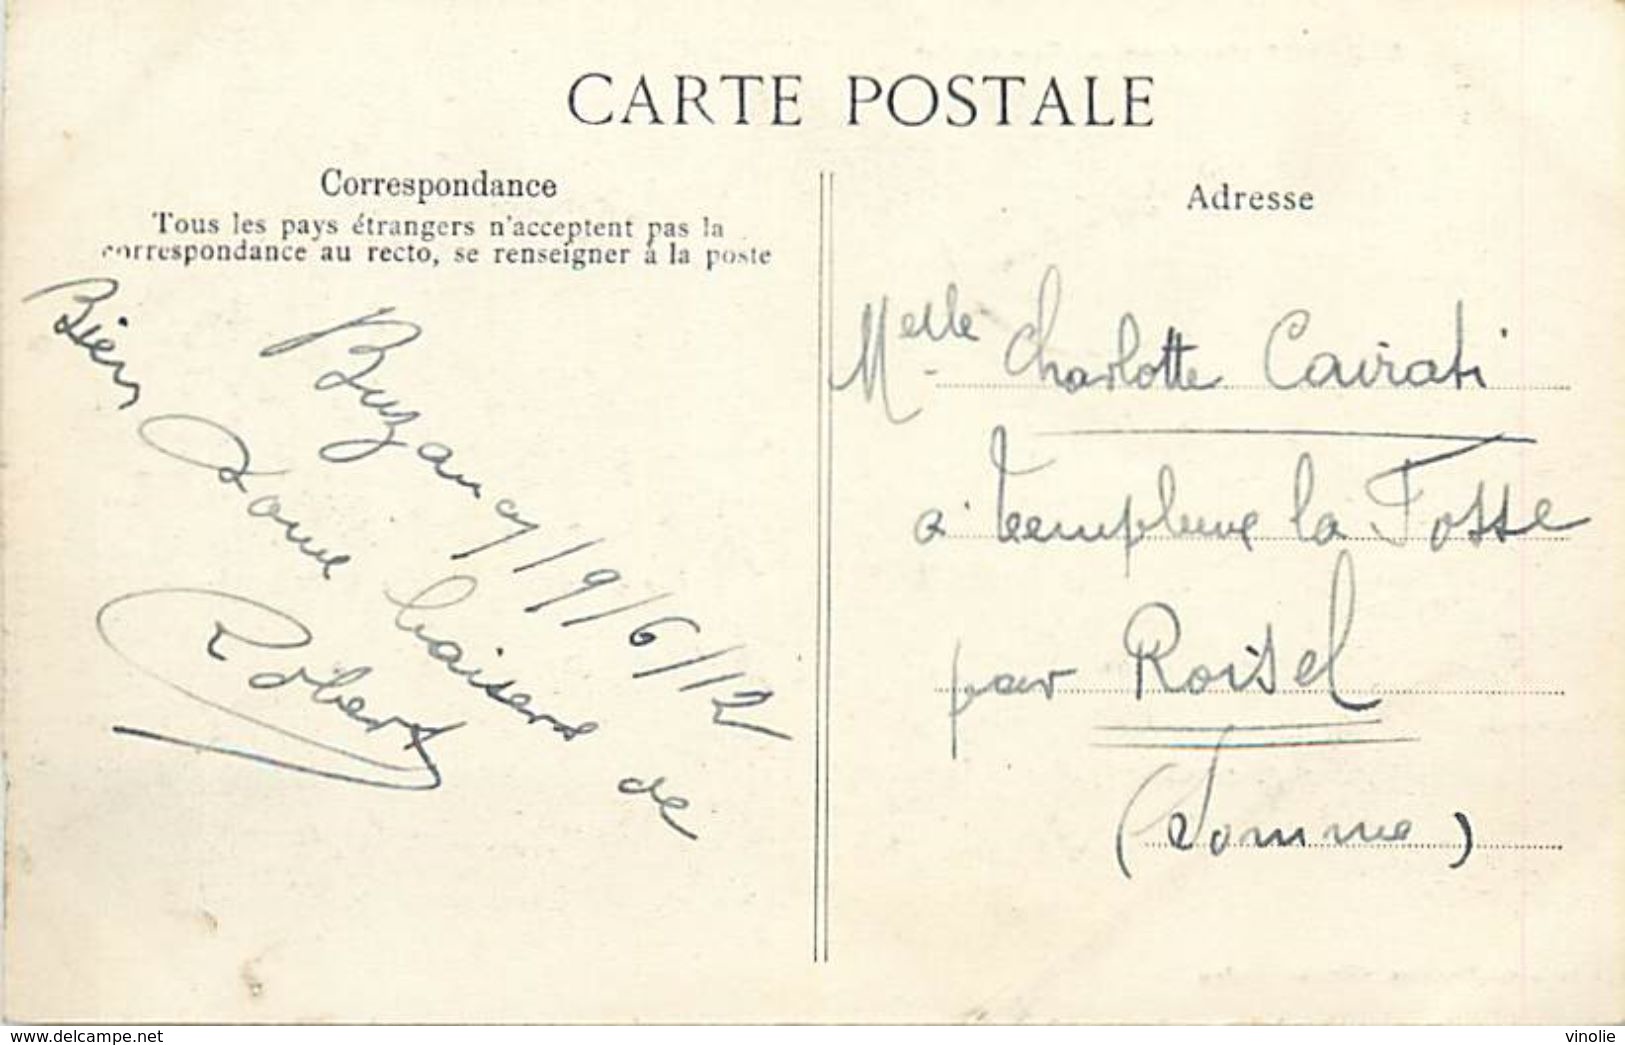 CARTE POSTALE
Correspondance
Tous les pays étrangers n'acceptent pas la
correspondance au recto, se renseigner à la poste
Buzancy/9/6/12
Bien doux baisers de
Robert
Adresse
Melle Charlotte Cairati
à Templeux la Fosse
par Roisel
(Somme)
www.delcampe.net
vinolie